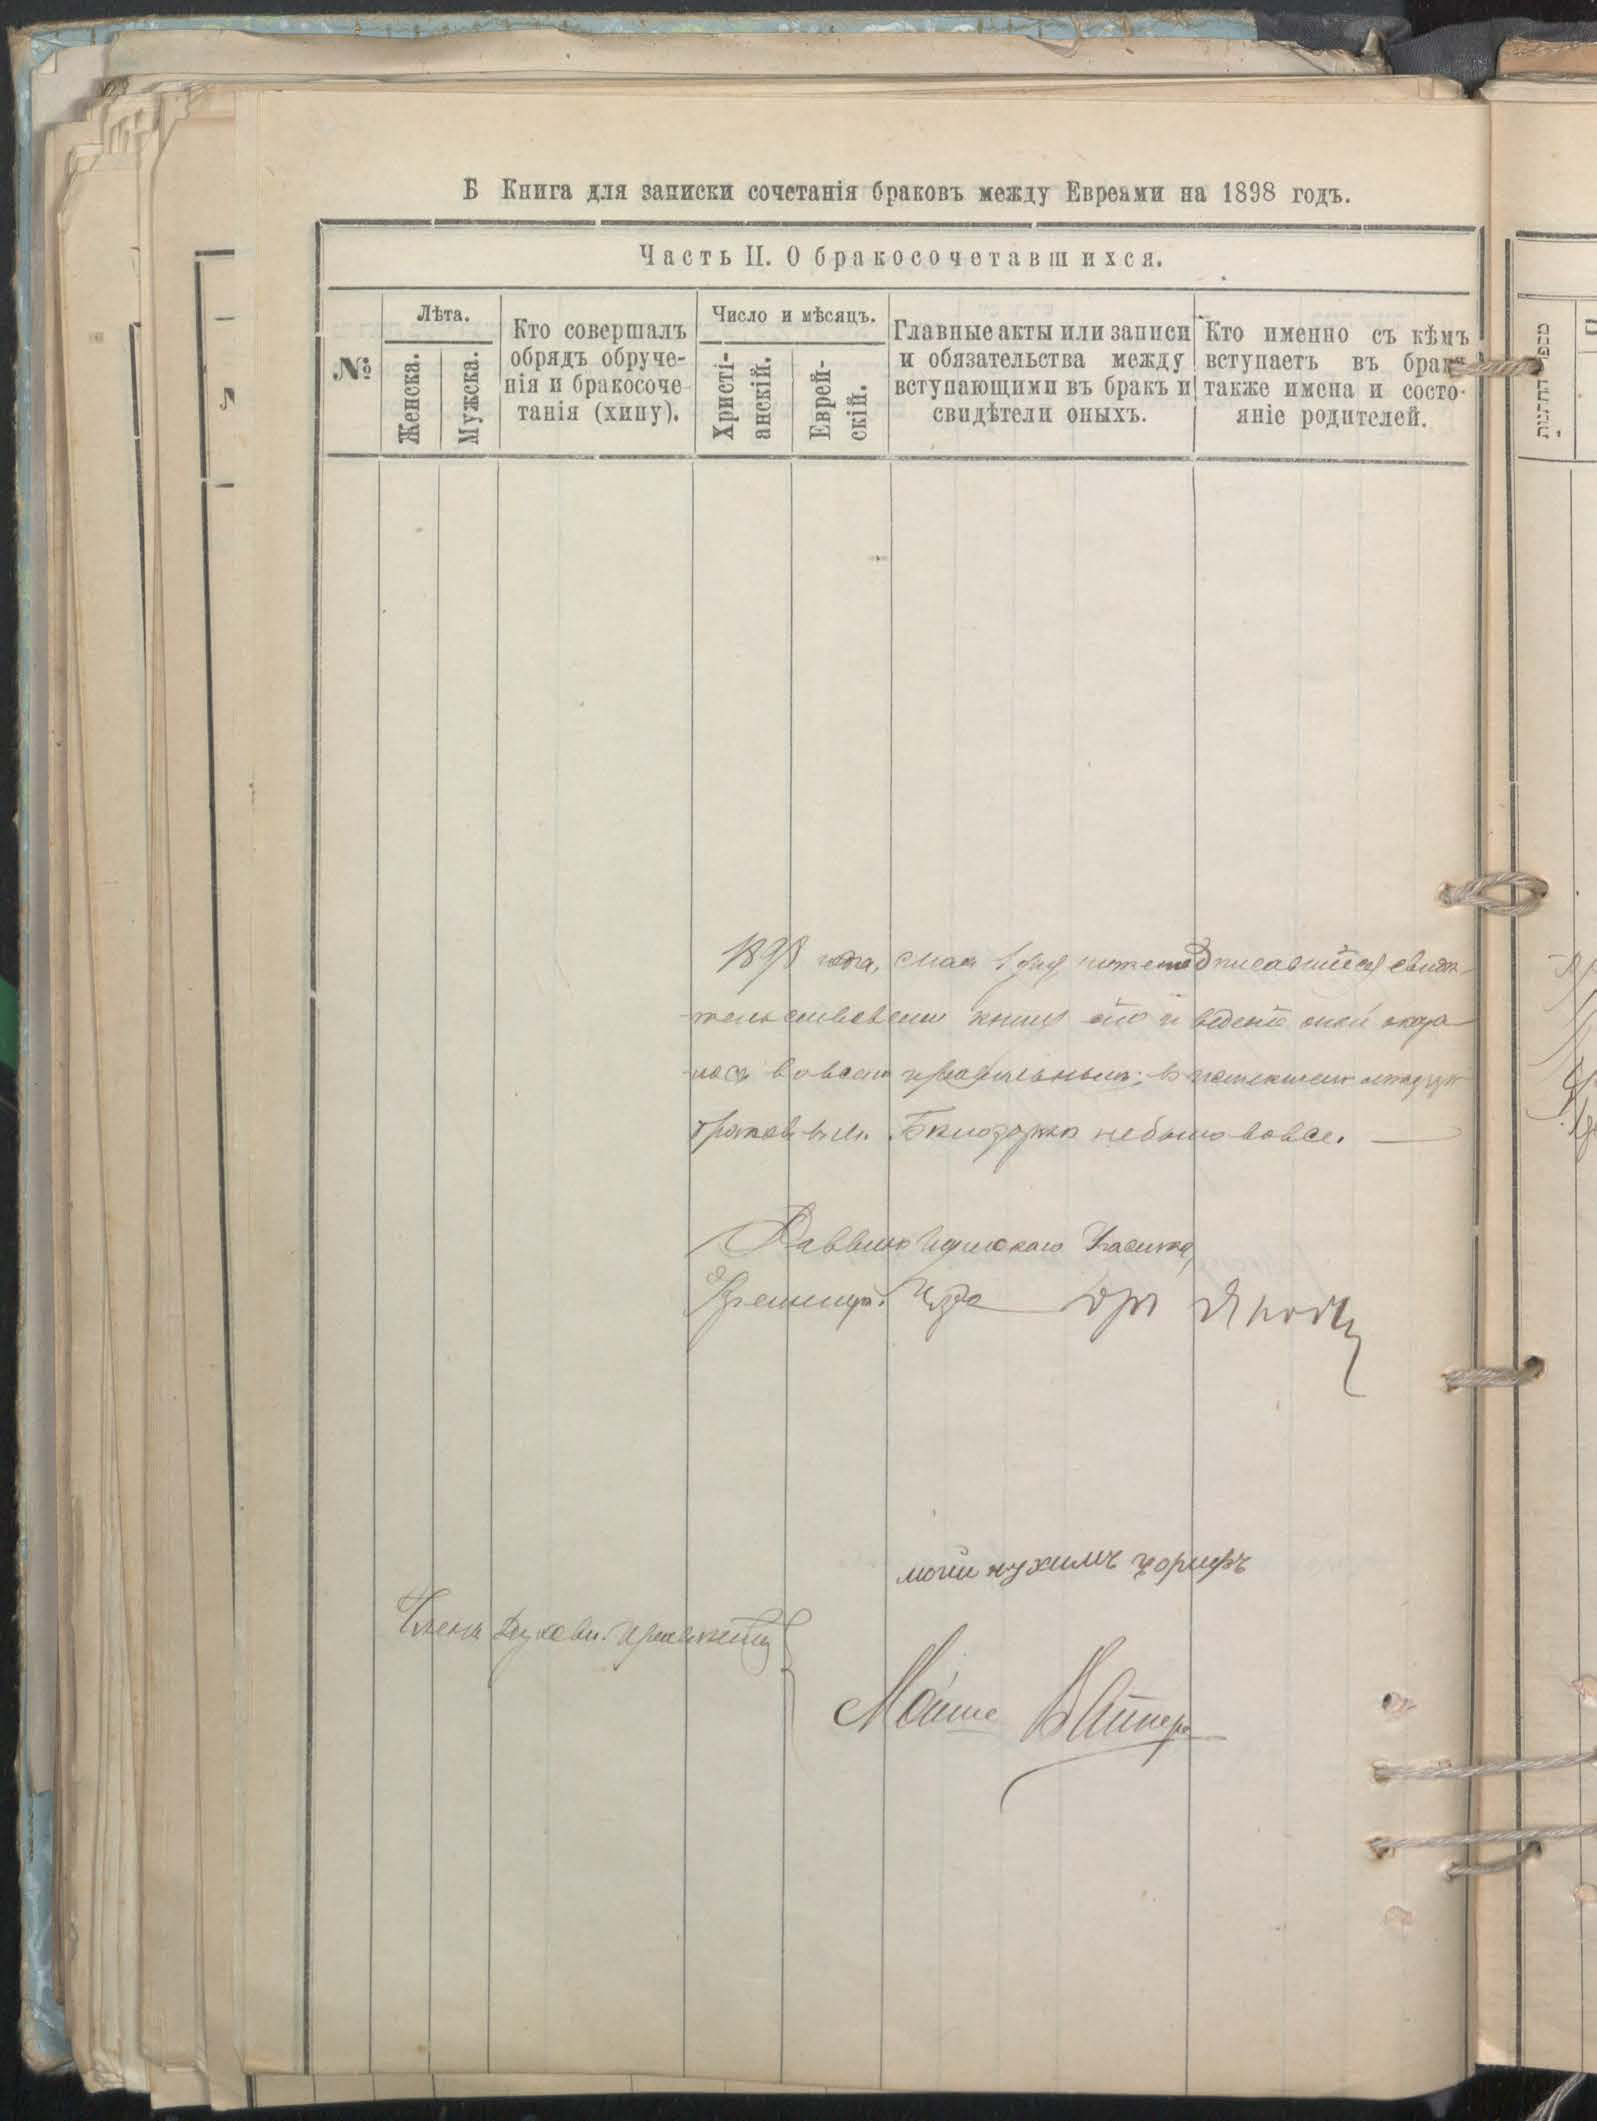 Б Книга для записки сочетанія браковъ между Евреями на 1898 годъ.
Часть II. О бракосочетавшихся.
№
Лѣта.
Женска.
Мужска.
Кто совершалъ
обрядъ обруче-
нія и бракосоче-
танія (хипу).
Число и мѣсяцъ.
Христі-
анскій.
Еврей-
скій.
Главные акты или записи
и обязательства между
вступающими въ бракъ и
свидѣтели оныхъ.
Кто именно съ кѣмъ
вступаетъ въ бракъ
также имена и состо-
яніе родителей.
1898 года, мая 1 дня нижеподписавшійся свидѣ-
тельствовали книгу сію и веденіе оной оказа-
лось вовсемъ правильнымъ; въ истекшемъ
браковъ въ м. небыло вовсе.
Раввинъ
Кременец. уезда
Члены Духовн. Правленія
нухимъ
Мойше